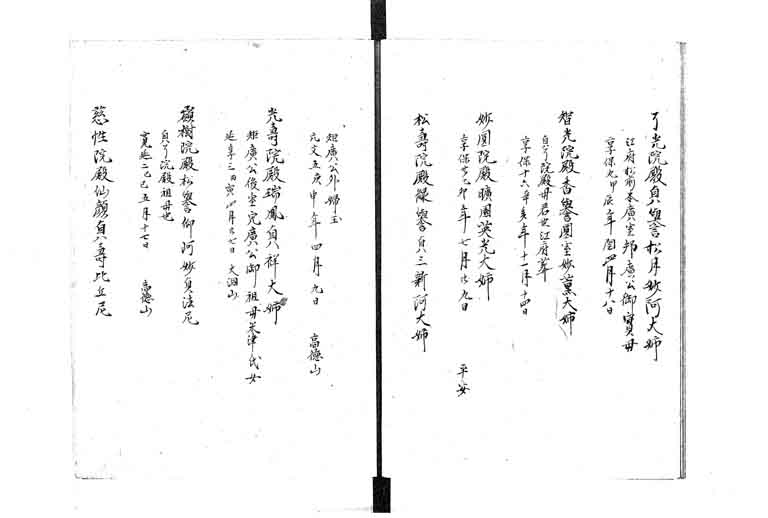 了光院殿貞誉松月妙阿大姉
江府松前本廣室邦廣公御實母
享保九甲辰年閏四月十八日
智光院殿香誉圓室妙薫大姉
貞了院殿母君也江府葬
享保十六辛亥年十一月十四日
妙圓院殿曠國英光大姉
享保 乙卯年七月廿九日 平安
松壽院殿緑誉貞三新阿大姉
矩廣公外婦玉
元文五庚申年四月九日 高徳山
光壽院殿瑞鳳貞祥大姉
矩廣公後室完廣公御祖母米津氏女
延享三丙寅四月廿七日 大洞山
嶺樹院殿松誉仰阿妙貞法尼
貞了院殿祖母也
寛延二己巳五月十七日 高徳山
慈性院殿仙顔貞壽比丘尼